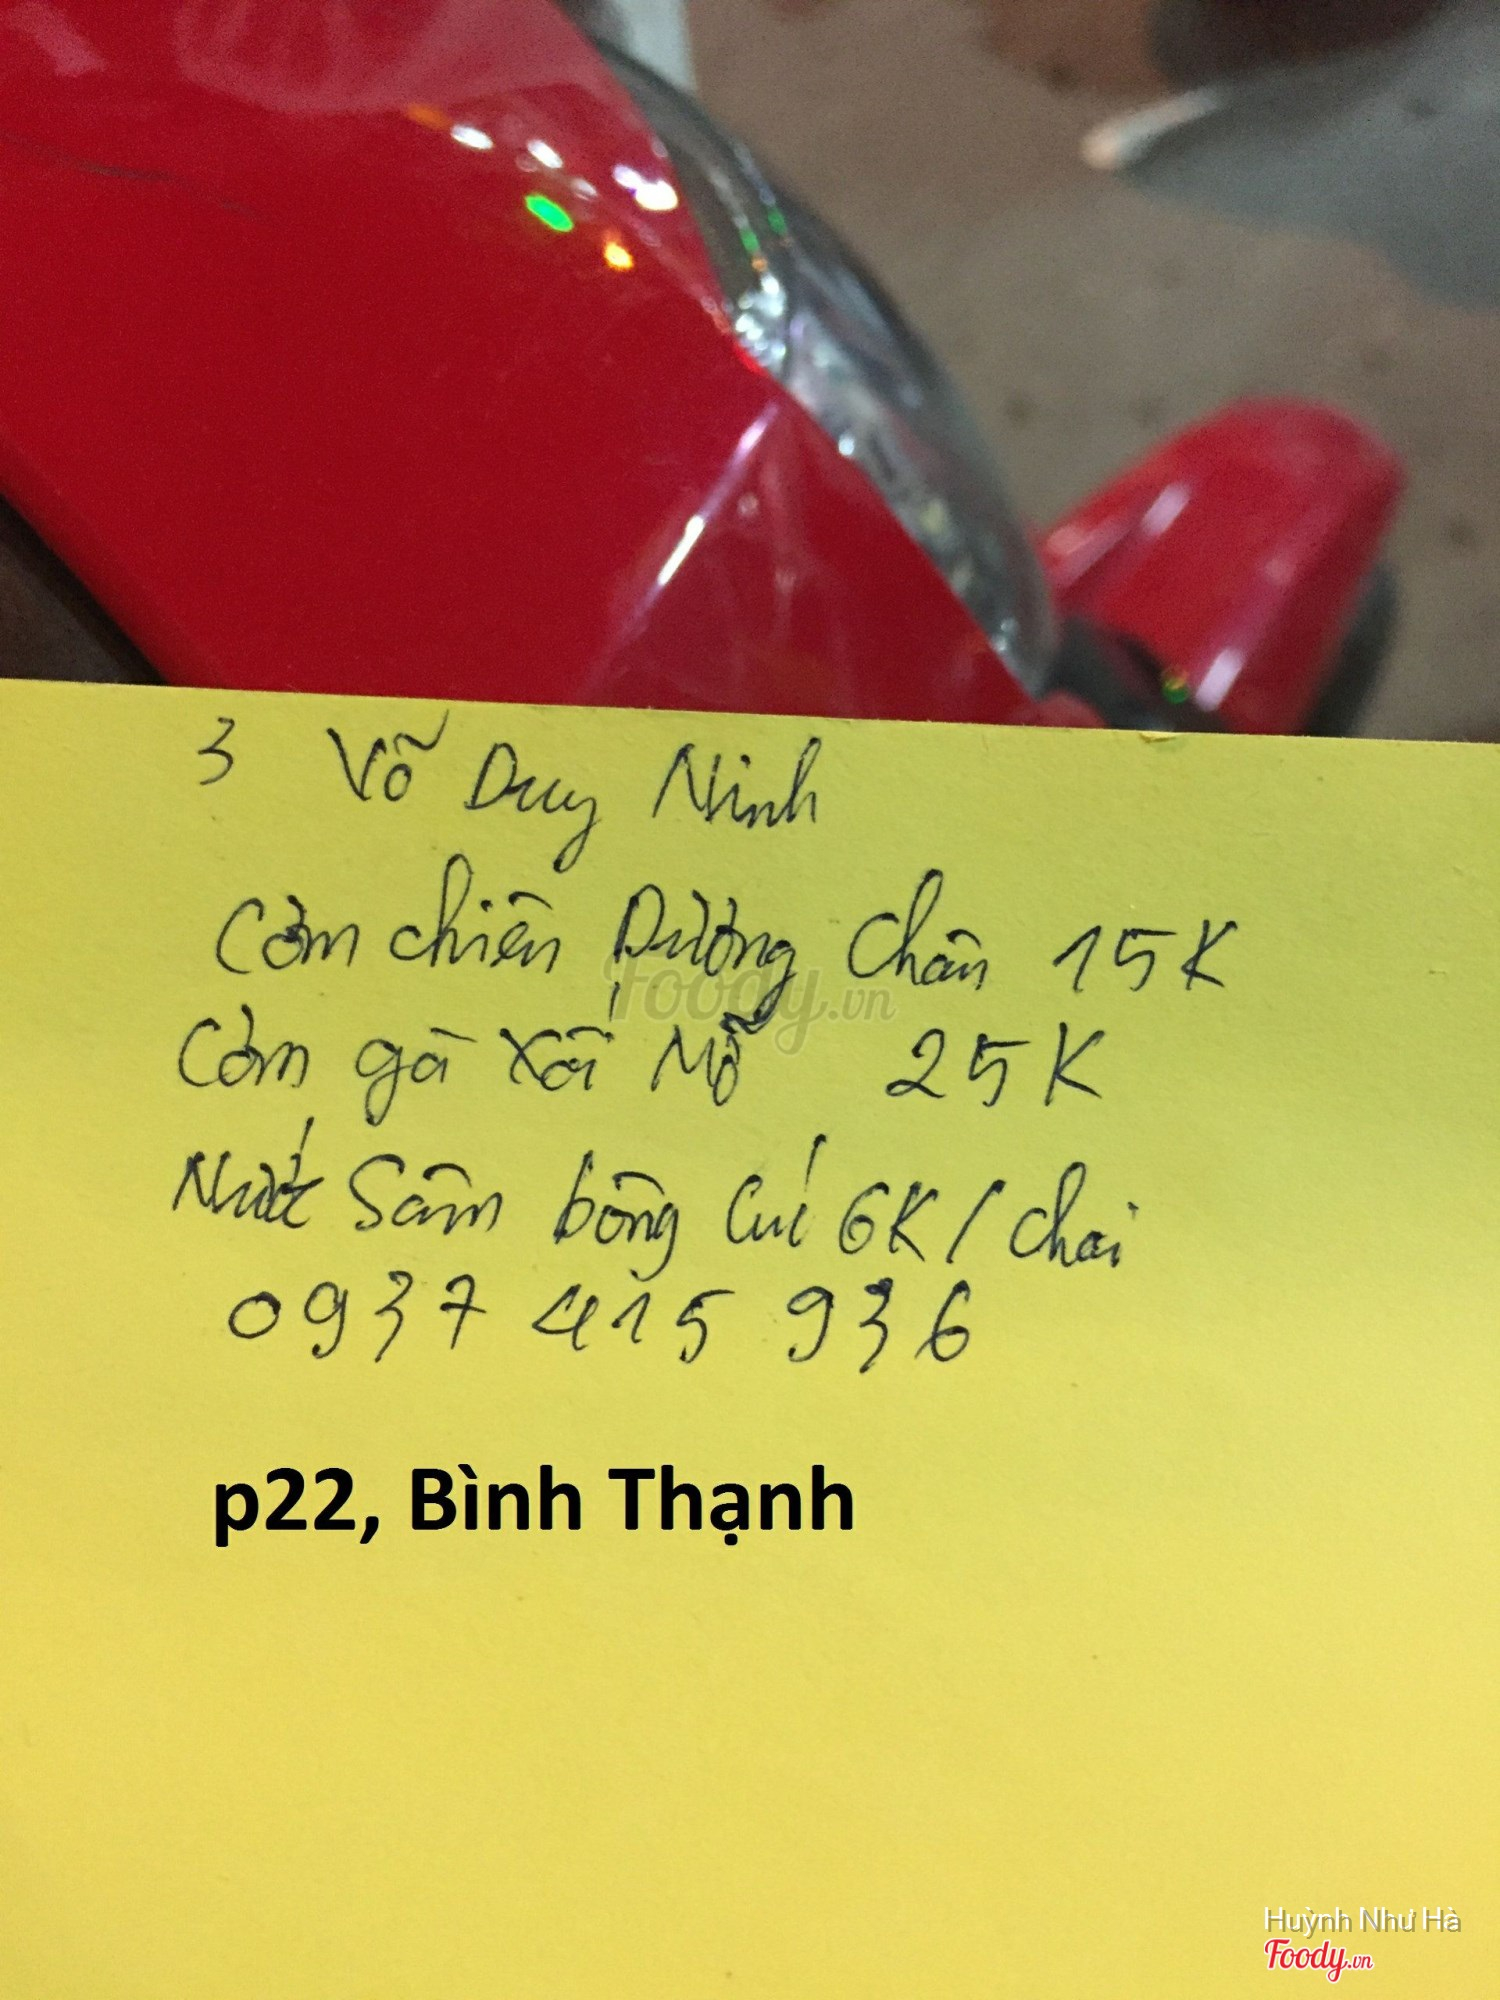 3 Võ Duy Ninh
Cơm chiên Dương Châu 15K
Foody.vn
Cơm gà xối Mỡ 25K
Nước Sâm bông Cúc 6K/chai
0937 415 936
p22, Bình Thạnh
Huỳnh Như Hà
Foody.vn